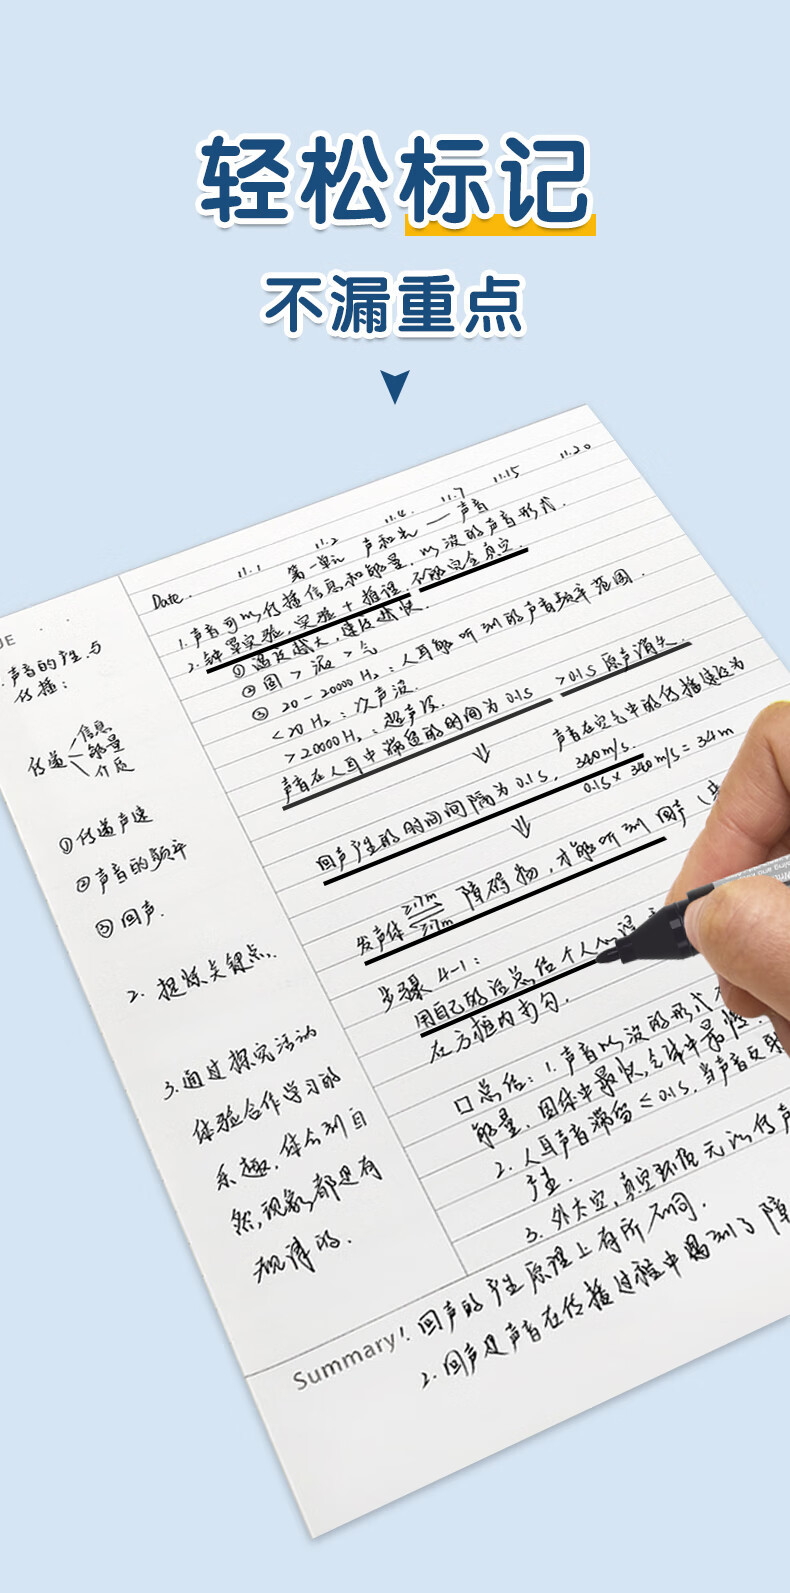 轻松标记
不漏重点
11.1 11.2 11.4 11.7 11.15 11.20
Date.
第一单元 声和光 — 声音
1.声音可以传播信息和能量,以波的声音形式.
2.钟罩实验,实验+推理,不能完全真空.
①温度越大,速度越快.
②固 > 液 > 气
③ 20-20000Hz:人耳能听到的声音频率范围.
<20Hz:次声波.
>20000Hz:超声波.
声音在人耳中滞留的时间为0.1s >0.1s原声消失.
声音在空气中的传播速度为
340m/s.
回声产生的时间间隔为0.1s, 0.1s×340m/s=34m
发声体 ≥17m ≥17m 障碍物,才能听到回声
步骤4-1:
用自己的话总结个人
在方框内写句.
口总结:1.声音以波的形式
能量.固体中最快,气体中最慢.
2.人耳声音滞留≤0.1s,当声音反射
产生.
3.外太空,真空环境无法传声
UE
声音的产生与
传播:
传递 信息
能量
介质
①传递声速
②声音的频率
③回声.
2.提炼关键点.
3.通过探究活动
体验合作学习的
乐趣.体会到自
然,现象都是有
规律的.
Summary!.回声的产生原理上有所不同.
2.回声是声音在传播过程中遇到了障